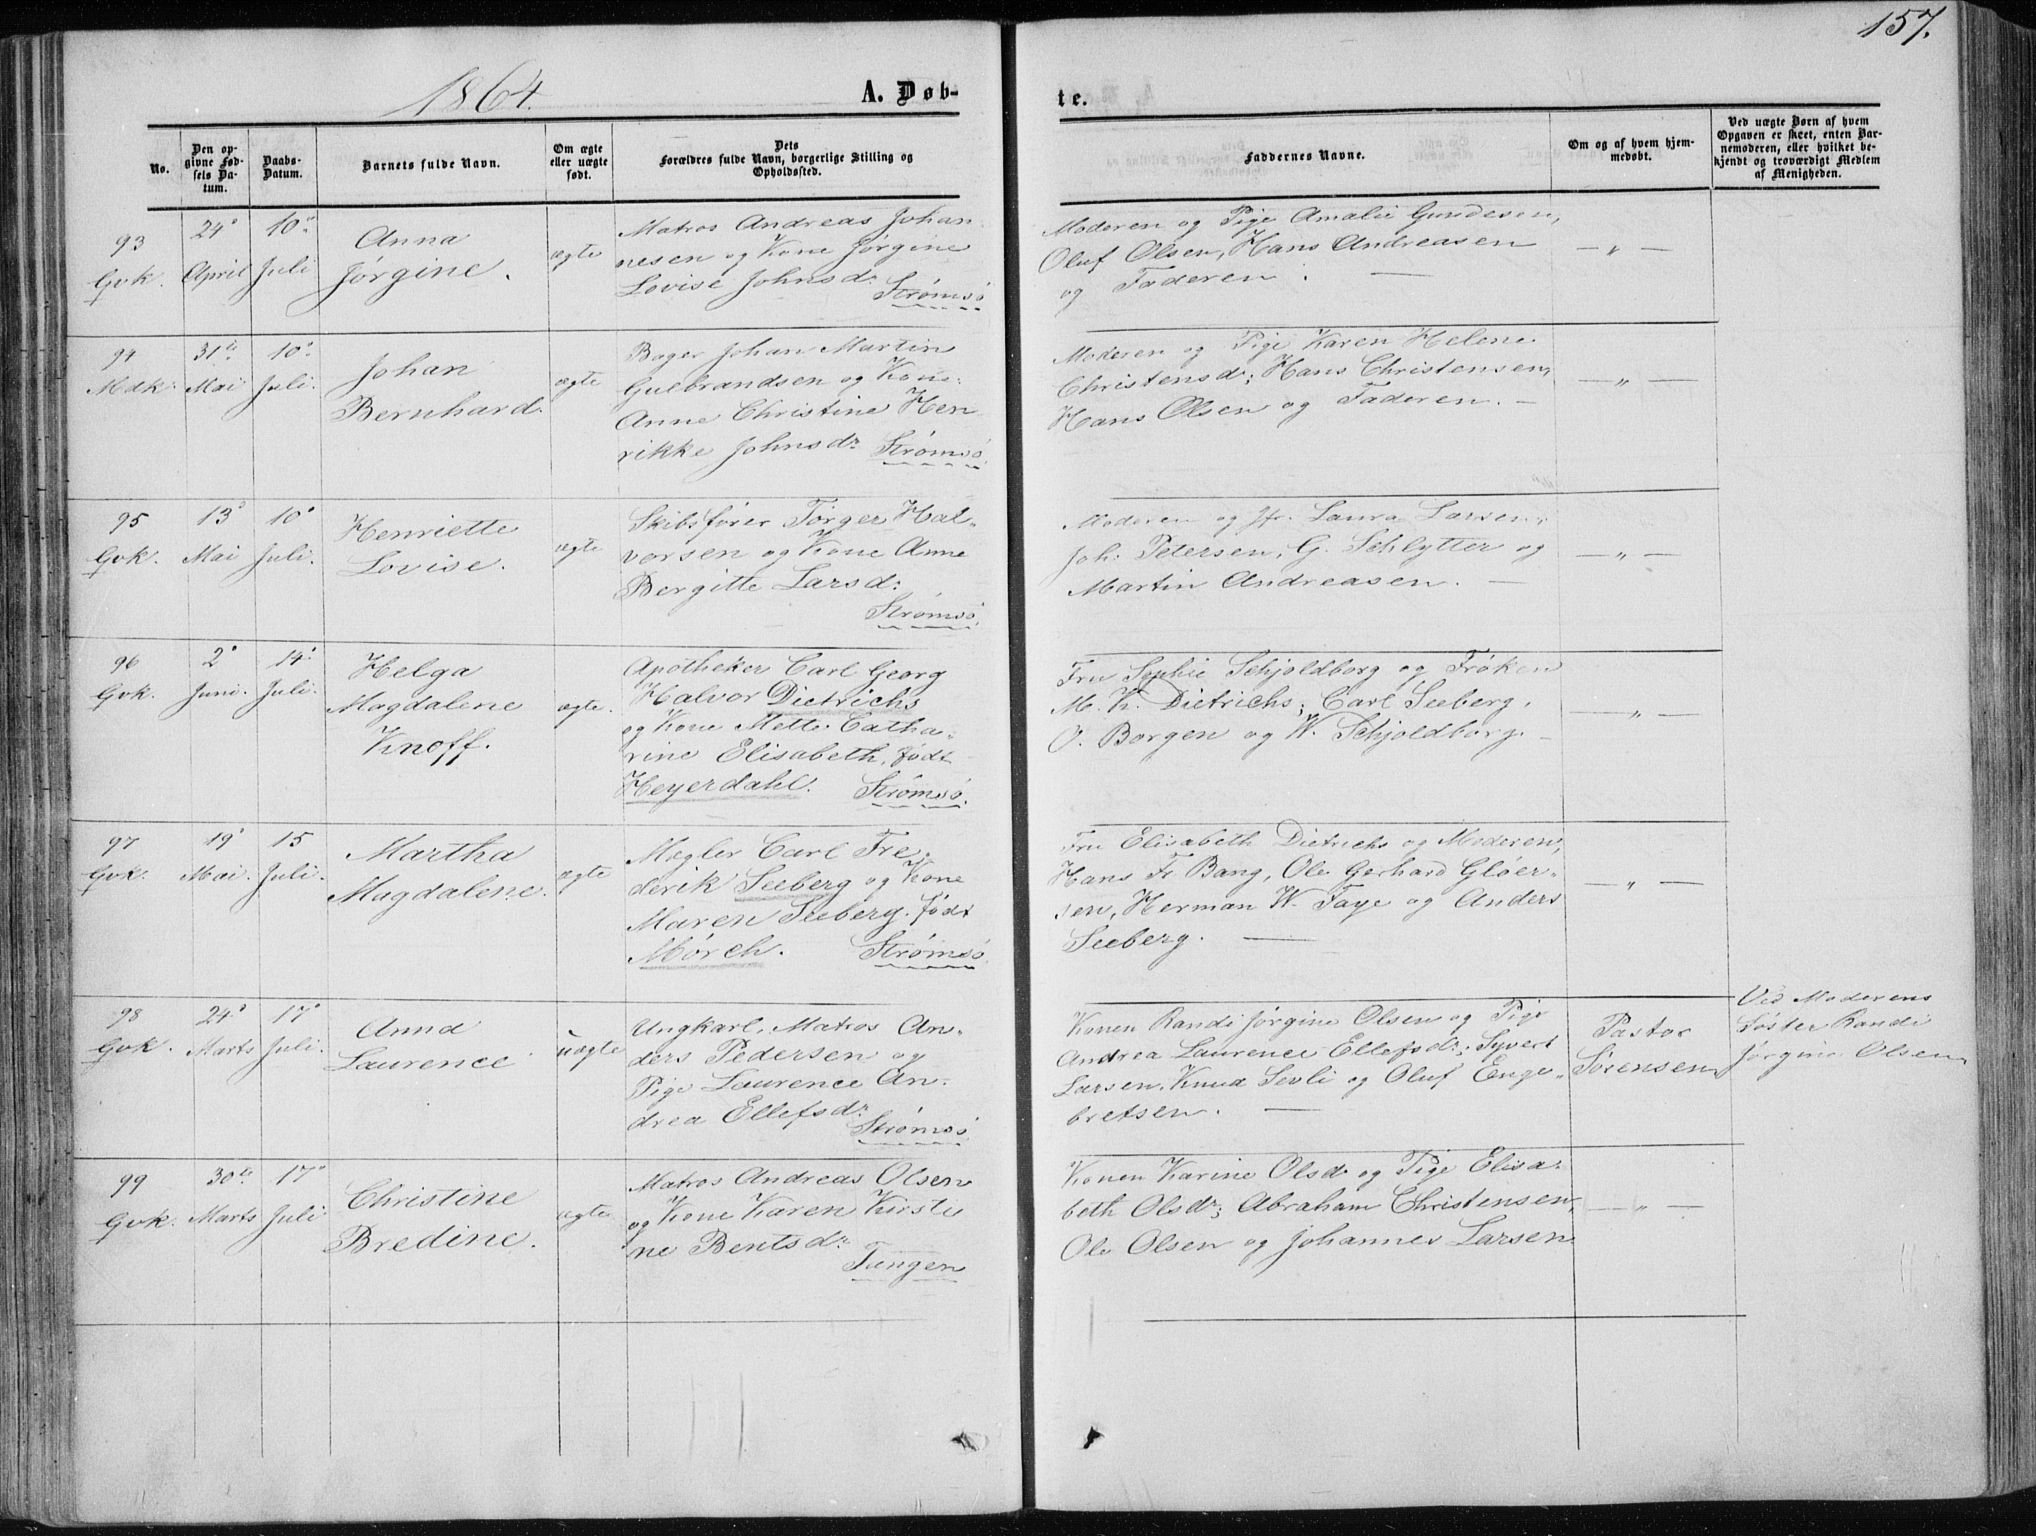 157.
1864.
A. Døb-
te.
No.
Den op-
givne Fød-
sels Da-
tum.
Daabs-
Datum.
Barnets fulde Navn.
Om ægte
eller uægte
født.
Dets
Forældres fulde Navn, borgerlige Stilling og
Opholdssted.
Faddernes Navne.
Om og af hvem hjem-
medøbt.
Ved uægte Børn af hvem
Opgaven er skeet, enten Bar-
nemoderen, eller hvilket be-
kjendt og troværdigt Medlem
af Menigheden.
93
Gvk.
24de
April
10de
Juli
Anna
Jørgine.
ægte
Matros Andreas Johan-
nesen og Kone Jørgine
Lovise Johnsdr.
Strømsø
Moderen og Pige Amalie Gundesen,
Oluf Olsen, Hans Andreasen
og Faderen. —
— " —
94
Mdk.
31te
Mai
10de
Juli.
Johan
Bernhard.
ægte
Bager Johan Martin
Gulbrandsen og Kone
Anne Christine Hen
rikke Johnsdr. Strømsø.
Moderen og Pige Karen Helene
Christensdr; Hans Christensen,
Hans Olsen og Faderen. —
— " —
95
Gvk.
13de
Mai
10de
Juli.
Henriette
Lovise.
ægte
Skibsfører Tørger Hal-
vorsen og Kone Anne
Bergitte Larsdr.
Strømsø.
Moderen og Jfr. Laura Larsen,
Joh. Petersen, G. Schlytter og
Martin Andreasen. —
— " —
96
Gvk.
2den
Juni.
14de
Juli.
Helga
Magdalene
Knoff.
ægte.
Apotheker Carl Georg
Halvor Dietrichs
og Kone Mette Catha-
rine Elisabeth, født
Heyerdahl. Strømsø.
Fru Sophie Schjoldborg og Frøken
M. K. Dietrichs; Carl Seeberg,
O. Borgen og W. Schjoldborg. —
— " —
97
Gvk.
19de
Mai.
15
Juli.
Martha
Magdalene.
ægte
Mægler Carl Fre-
derik Seeberg og Kone
Maren Seeberg. født
Mørch. Strømsø.
Fru Elisabeth Dietrichs og Moderen,
Hans Fr Bang, Ole Gerhard Gløer-
sen, Herman W. Faye og Anders
Seeberg. —
— " —
98
Gvk.
24de
Marts
17de
Juli.
Anna
Laurence
uægte
Ungkarl, Matros An-
ders Pedersen og
Pige Laurence An-
drea Ellefsdr.
Strømsø
Konen Randi Jørgine Olsen og Pige
Andrea Laurence Ellefsdr; Syvert
Larsen, Knud Sevli og Oluf Enge-
bretsen. —
Pastor
Sørensen
Ved Moderens
Søster Randi
Jørgine Olsen
99
Gvk.
30te
Marts
17de
Juli
Christine
Bredine.
ægte
Matros Andreas Olsen
og Kone Karen Kirsti
ne Bentsdr.
Tangen
Konen Karine Olsdr og Pige Elisa-
beth Olsdr; Abraham Christensen,
Ole Olsen og Johannes Larsen.
— " —